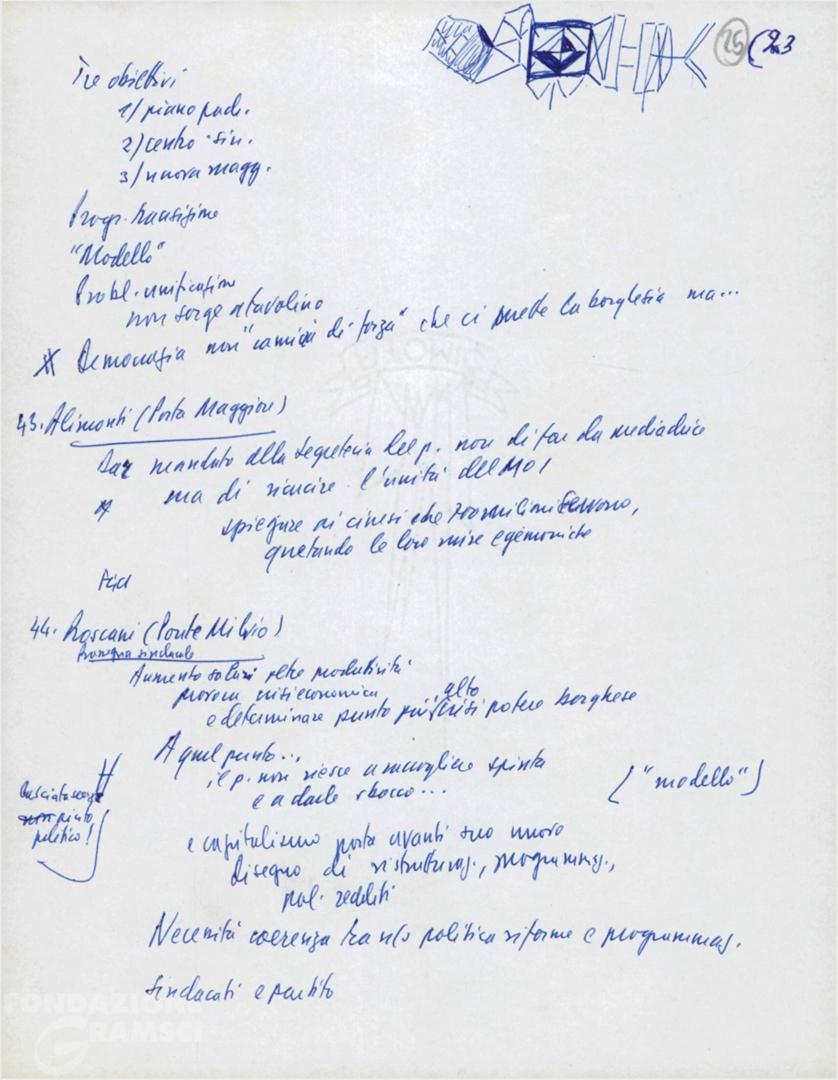 26 (23
Tre obiettivi
1/ piano pad.
2/ centro-sin.
3/ nuova magg.
Progr. transizione
"Modello"
Probl. unificazione
non sorge a tavolino
Democrazia non "camicia di forza" che ci mette la borghesia ma...
43. Alimonti (Porta Maggiore)
Dar mandato alla segreteria del p. non di far da mediatrice
ma di ricucire l'unità del MOI
spiegare ai cinesi che 700 milioni servono,
quetando le loro mire egemoniche
44. Roscani (Ponte Milvio)
Rassegna sindacale
Aumento salari oltre produttività
provoca crisi economica
e determinare punto più alto crisi potere borghese
A quel punto...
il p. non riesce a raccogliere spinta
e a darle sbocco...
("modello")
politico!
e capitalismo porta avanti suo nuovo
disegno di ristrutturaz., programmaz.,
pol. redditi
Necessità coerenza tra ns politica riforme e programmaz.
Sindacati e partito
FONDAZIONE
GRAMSCI